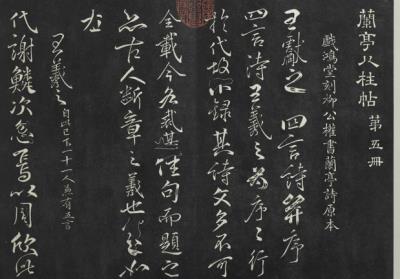 蘭亭八柱帖 第五冊
戲鴻堂刻柳公權書蘭亭詩原本
王獻之 四言詩并序
四言詩王羲之為序序行
於代故不錄其詩文多不可
全載今各裁其佳句而題之
亦古人斷章之義也
王羲之 自此已下十一人並有五言
代謝鱗次忽焉以周欣此